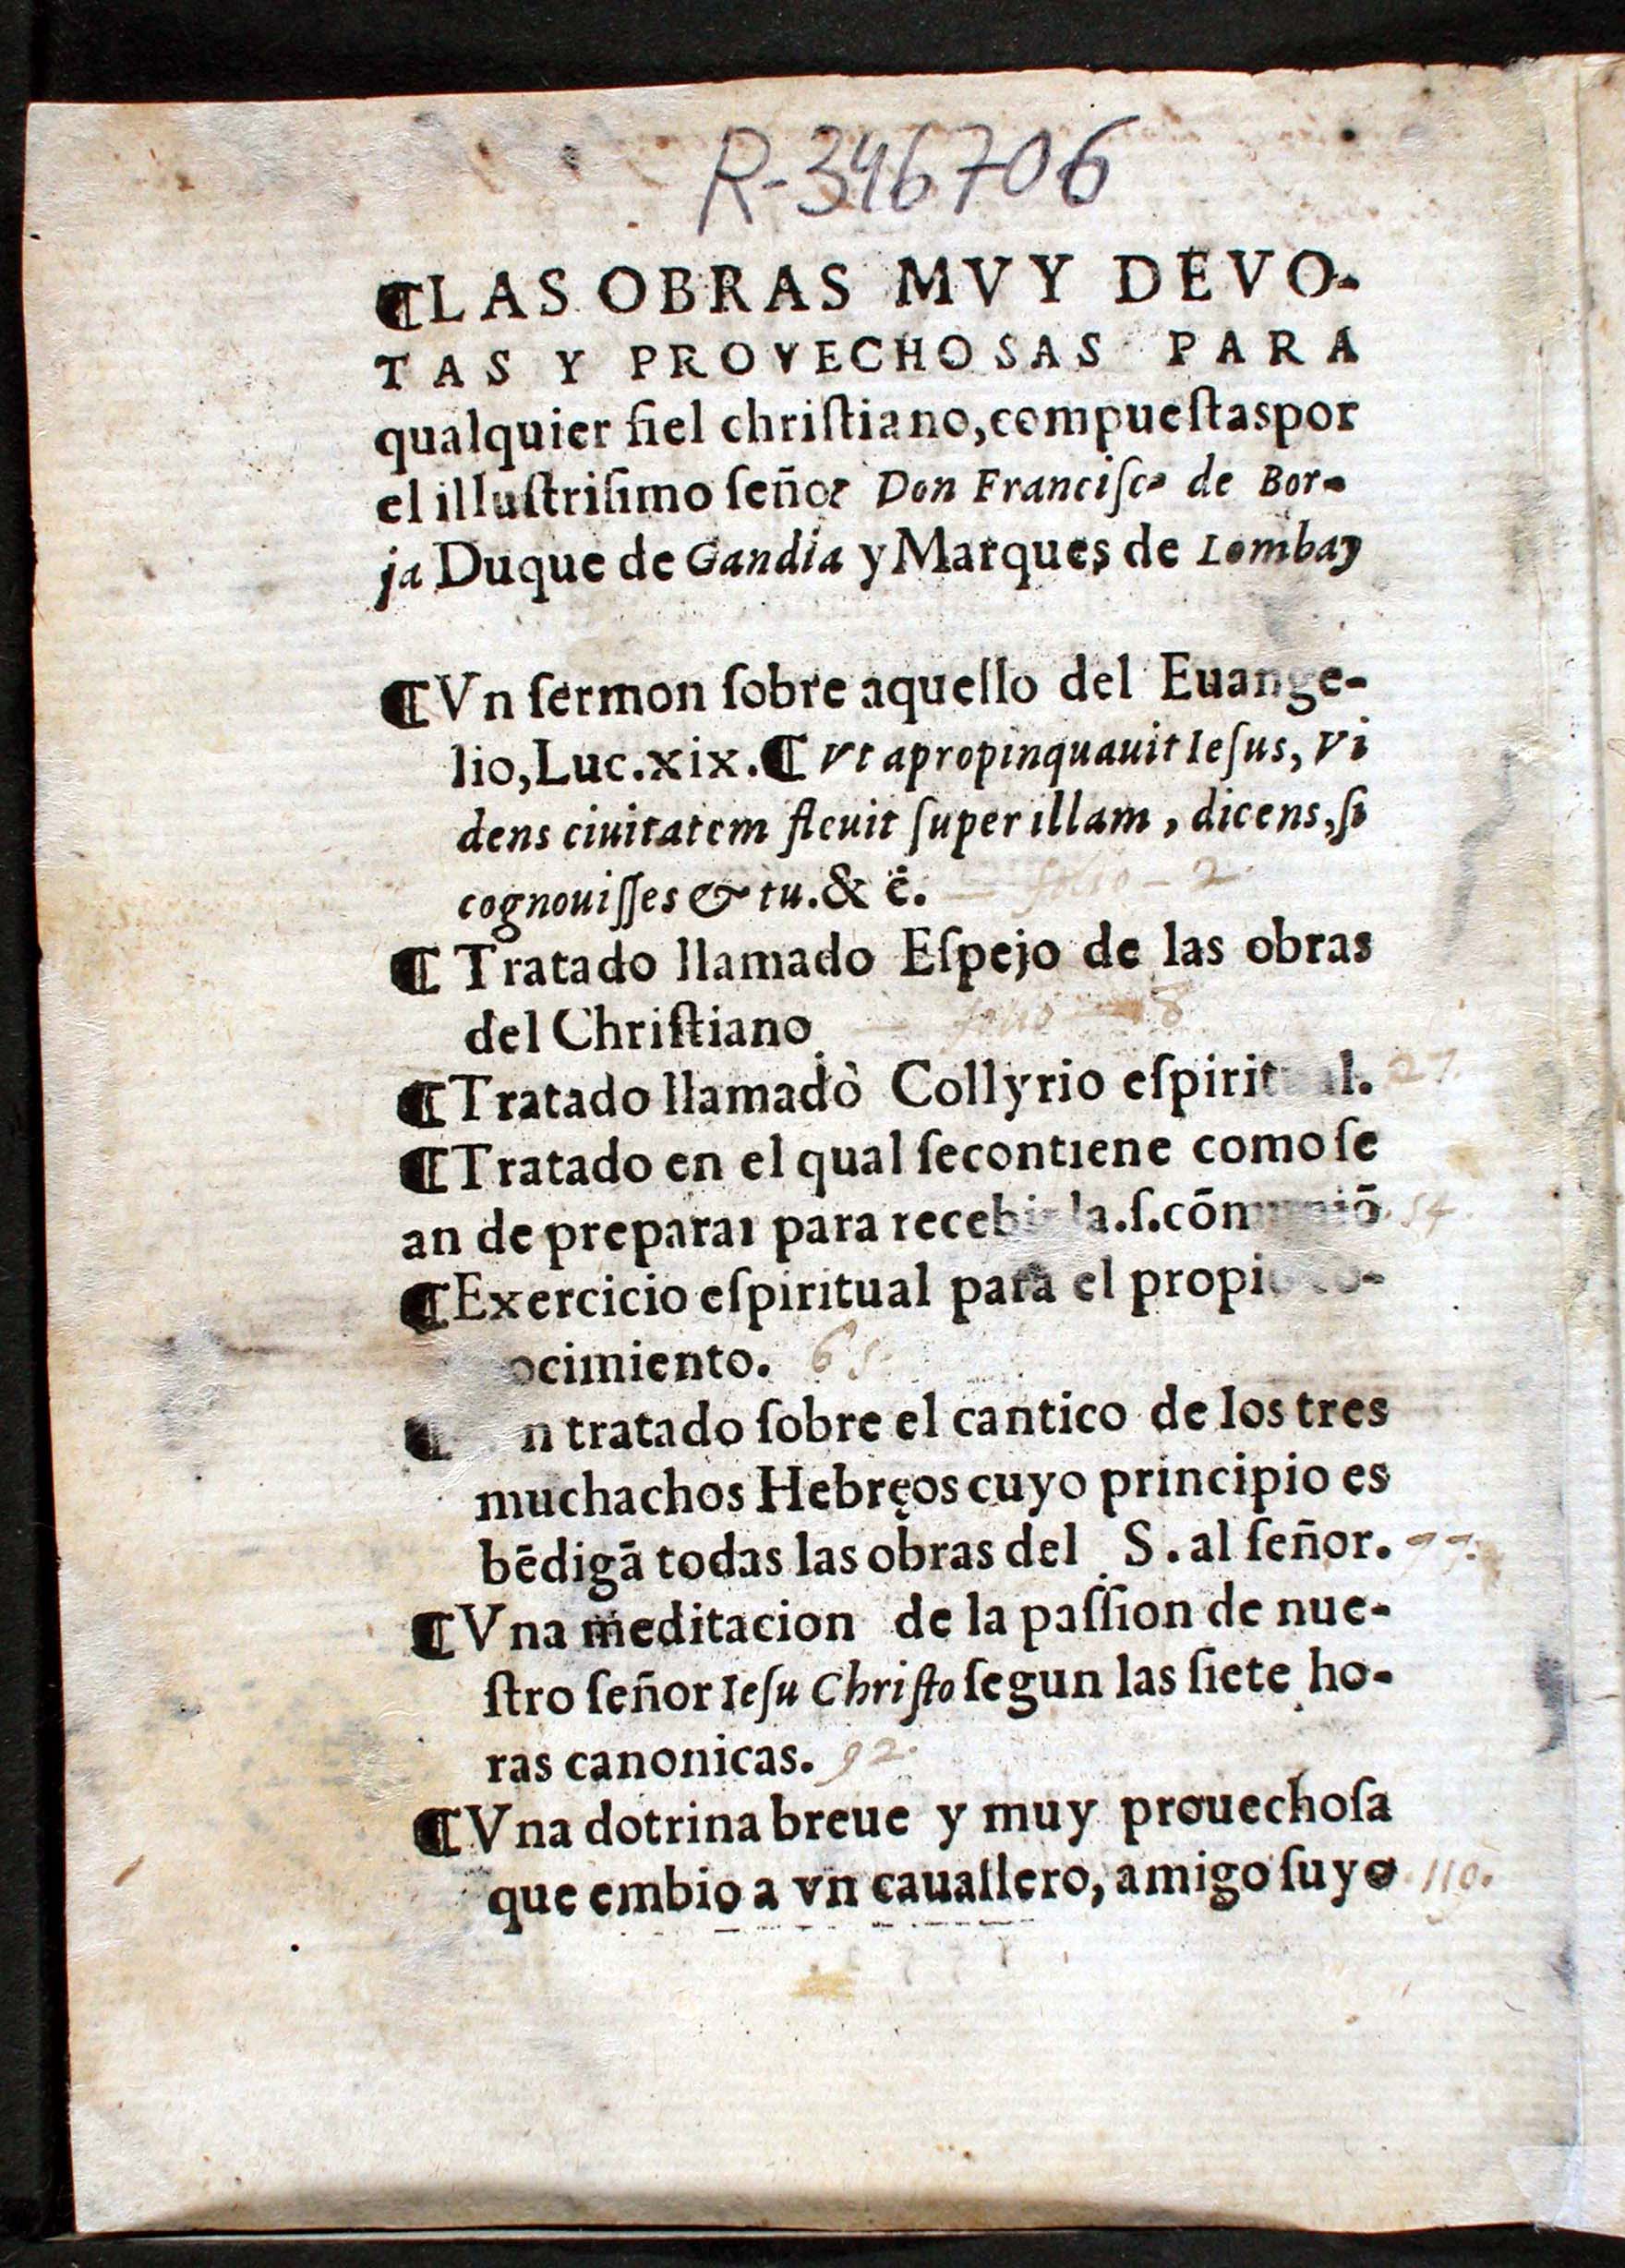 R-346706
¶LAS OBRAS MVY DEVO-
TAS Y PROVECHOSAS PARA
qualquier fiel chriſtiano,compueſtaspor
el illuſtriſimo ſeñor Don Franciſco de Bor-
ja Duque de Gandia y Marques de Lombay
¶Vn ſermon ſobre aquello del Euange-
lio,Luc.xix.¶ Vt apropinquauit Ieſus, Vi
dens ciuitatem fleuit ſuper illam, dicens,ſi
cognouiſſes & tu.& c̄. — folio - 2
¶ Tratado llamado Eſpejo de las obras
del Chriſtiano — folio — 8
¶Tratado llamado Collyrio eſpiritual. 27.
¶Tratado en el qual ſecontiene como ſe
an de preparar para recebir la.ſ.cōmuniō 54.
¶Exercicio eſpiritual para el propio co-
ocimiento. 65.
¶ n tratado ſobre el cantico de los tres
muchachos Hebręos cuyo principio es
bēdigā todas las obras del S. al ſeñor.
¶Vna meditacion de la paſſion de nue-
ſtro ſeñor Ieſu Chriſto ſegun las ſiete ho-
ras canonicas. 92.
¶Vna dotrina breue y muy prouechoſa
que embio a vn cauallero, amigo ſuyo 110.